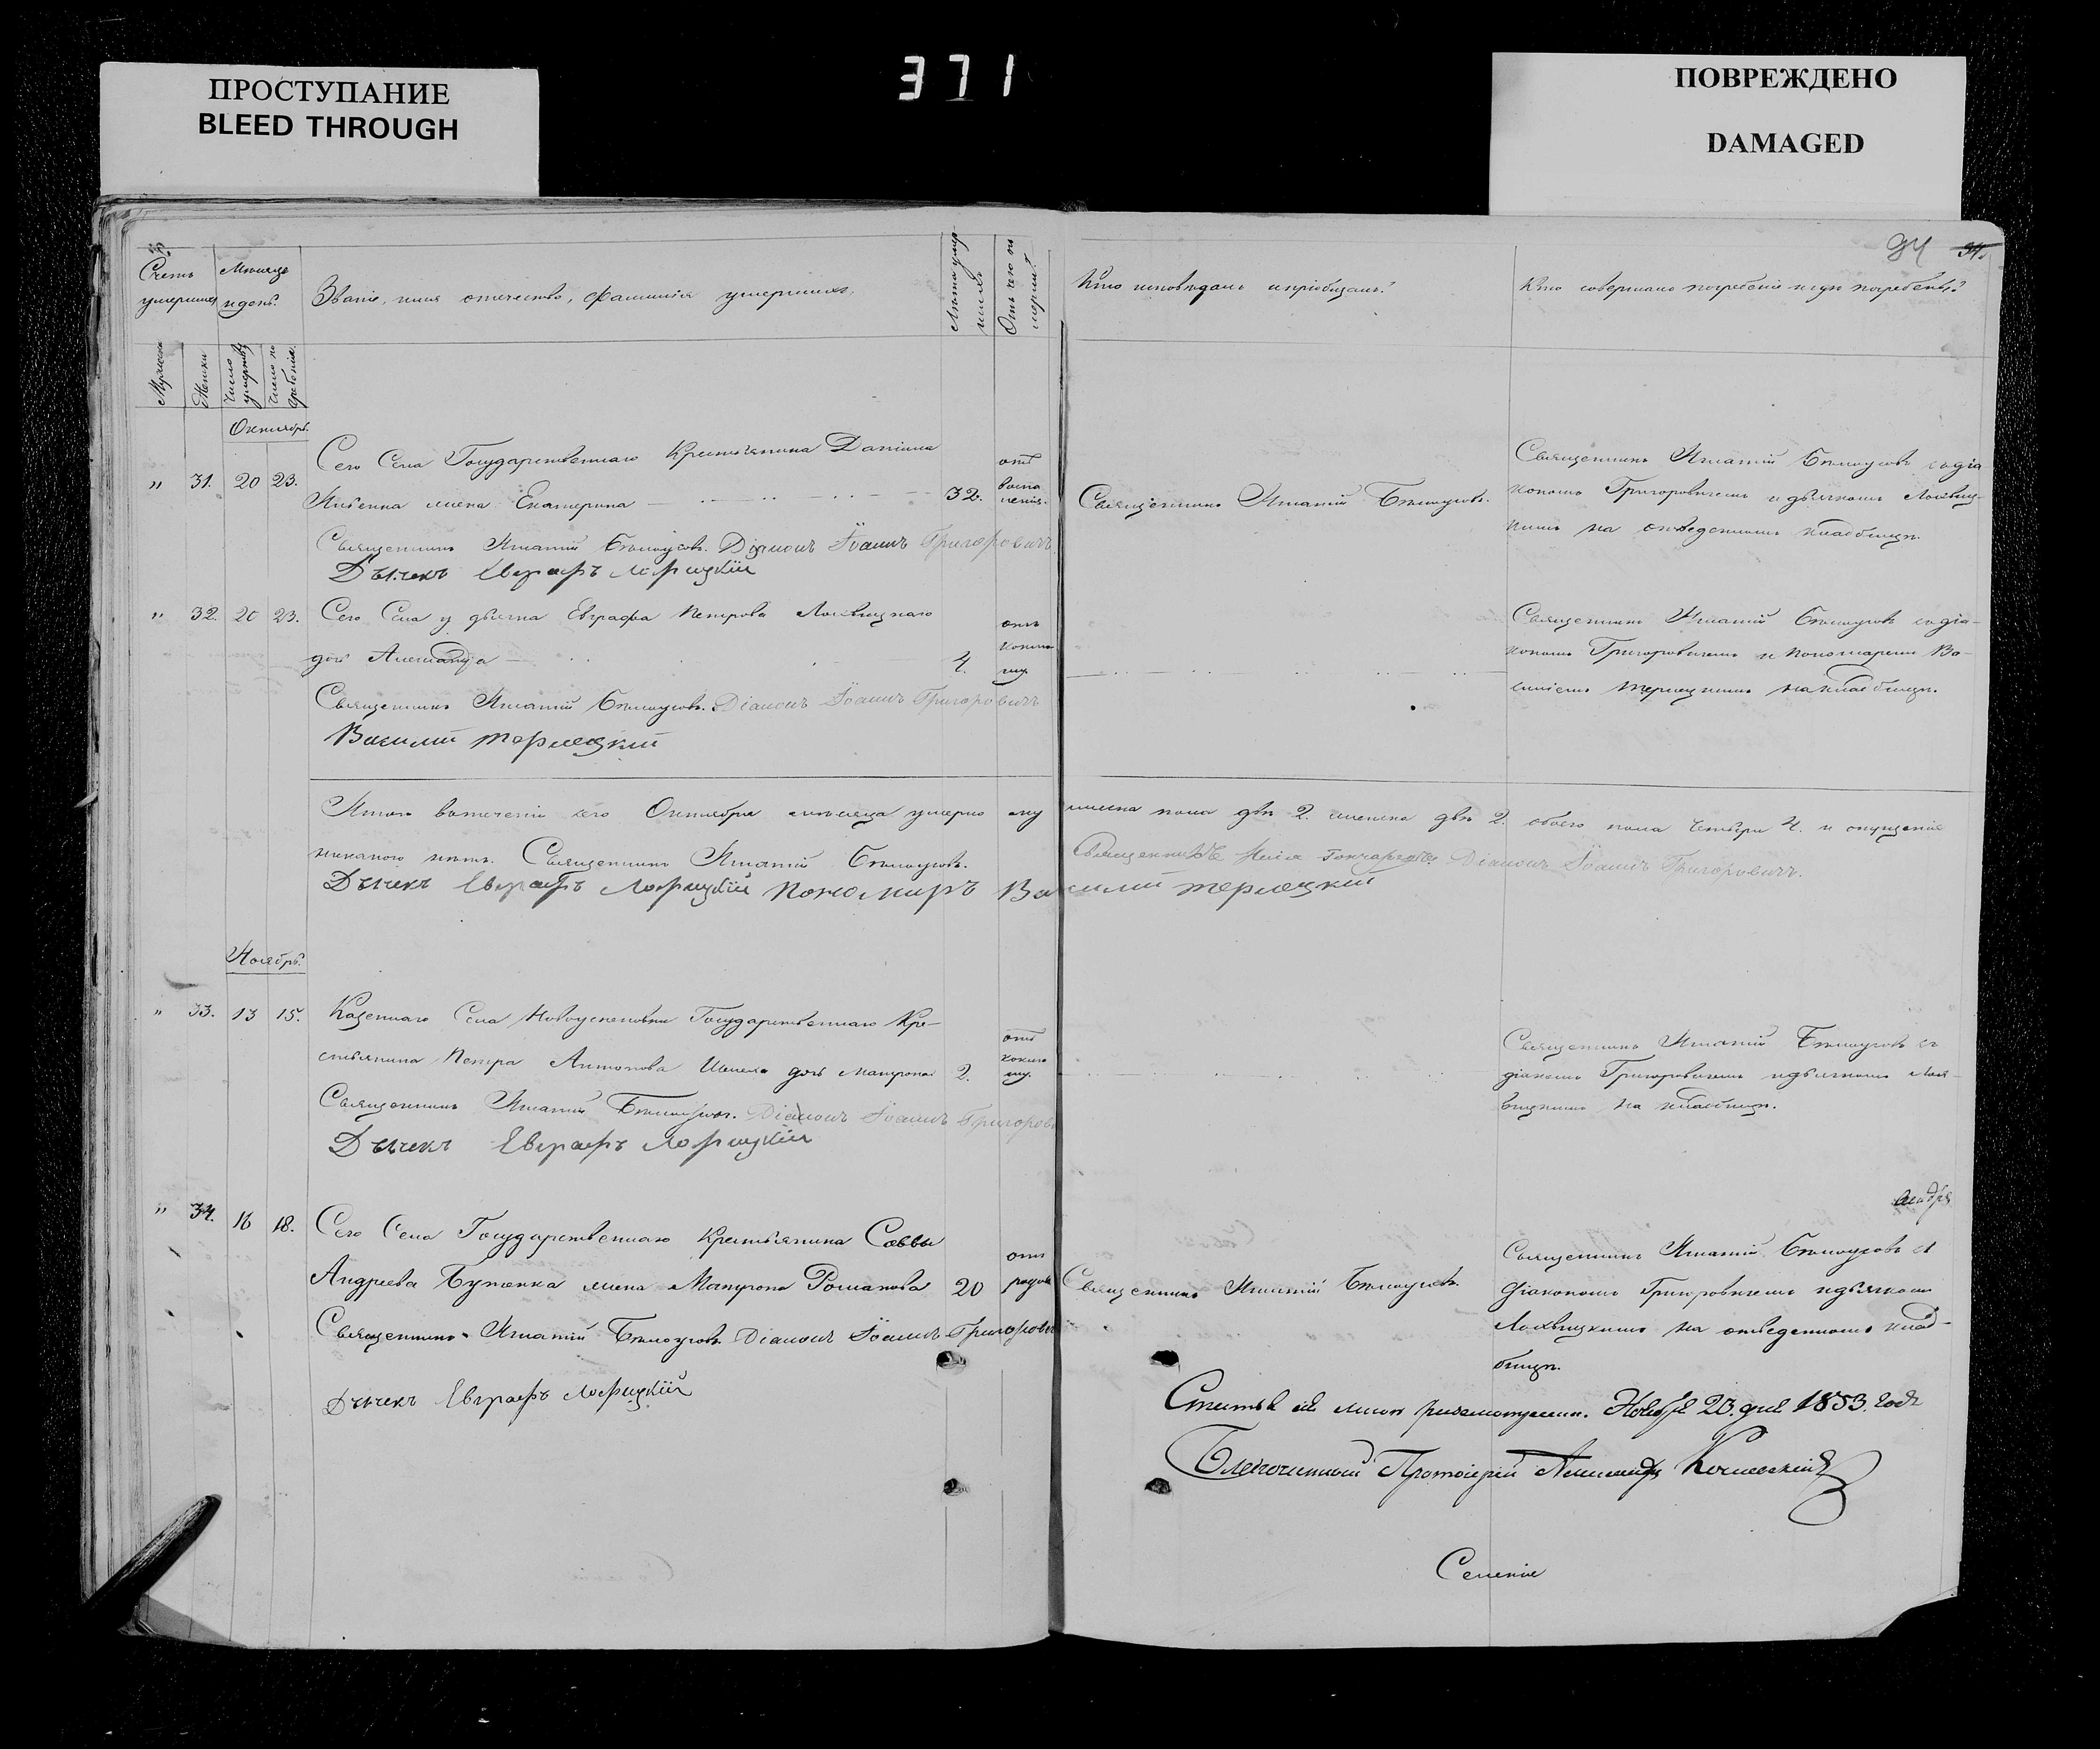 371
ПРОСТУПАНИЕ
BLEED THROUGH
ПОВРЕЖДЕНО
DAMAGED
94
Счетъ умершихъ
Мѣсяцъ и день.
Званіе, имя отчество, фамилія умершихъ.
Лѣта умершихъ
Отъ чего померли?
Кто исповѣдалъ и пріобщалъ?
Кто совершалъ погребеніе и гдѣ погребены?
Мужеска
Женска
Число смерти
Число погребенія.
Октябрь.
" 31. 20 23. Сего Села Государственнаго Крестьянина Даніила
жена Екатерина 32. отъ воспаленія.
Священникъ Игнатій Бѣлоусовъ.
Священникъ Игнатій Бѣлоусовъ съ діа-
кономъ Григоровичемъ и дьячкомъ Лохвиц-
кимъ на отведенномъ кладбищѣ.
Священникъ Игнатій Бѣлоусовъ. Діаконъ Іоаннъ Григоровичъ
Дьячекъ Евграфъ Лохвицкій
" 32. 20 23. Сего Села у дьячка Евграфа Петрова Лохвицкаго
дочь Александра 4. отъ коклюшу.
Священникъ Игнатій Бѣлоусовъ съ діа-
кономъ Григоровичемъ и Пономаремъ Ва-
силіемъ Терлецкимъ на кладбищѣ.
Священникъ Игнатій Бѣлоусовъ. Діаконъ Іоаннъ Григоровичъ
Василій Терлецкий
Итого въ теченіи сего Октября мѣсяца умерло мужеска пола два 2. женска двѣ 2. обоего пола четыри 4. и опущенія
никакого нѣтъ. Священникъ Игнатій Бѣлоусовъ. Священникъ Діаконъ Іоаннъ Григоровичъ.
Дьячекъ Евграфъ Лохвицкій Пономарь Василій Терлецкий
Ноябрь.
" 33. 13 15. Казеннаго Села Государственнаго Кре-
стьянина Петра Антонова дочь Матрона 2. отъ коклюшу.
Священникъ Игнатій Бѣлоусовъ съ
діакономъ Григоровичемъ и дьячкомъ Лох-
вицкимъ на кладбищѣ.
Священникъ Игнатій Бѣлоусовъ. Діаконъ Іоаннъ Григорови
Дьячекъ Евграфъ Лохвицкій
" 34. 16 18. Сего Села Государственнаго Крестьянина Саввы
Андреева жена Матрона Романова 20 отъ родовъ
Священникъ Игнатій Бѣлоусовъ.
Священникъ Игнатій Бѣлоусовъ съ
діакономъ Григоровичемъ и дьячкомъ
Лохвицкимъ на отведенномъ клад-
бищѣ.
Священникъ Игнатій Бѣлоусовъ. Діаконъ Іоаннъ Григорович
Дьячекъ Евграфъ Лохвицкій
Ноября 23. дня 1853. года
Благочинный Протоіерей Александръ